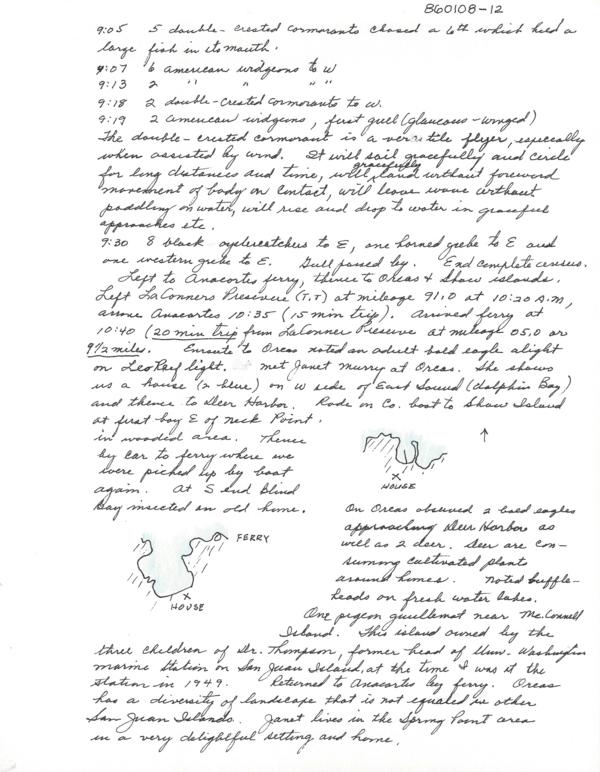 860108-12
9:05 5 double-crested cormorants chased a 6th which held a
large fish in its mouth.
9:07 6 american widgeons to W
9:13 2 " " " "
9:18 2 double-crested cormorants to W.
9:19 2 american widgeons, first gull (glaucous-winged)
The double-crested cormorant is a versatile flyer, especially
when assisted by wind. It will sail gracefully and circle
for long distances and time, will gracefully land without foreword
movement of body on contact, will leave wave without
paddling on water, will rise and drop to water in graceful
approaches etc.
9:30 8 black oystercatchers to E, one horned grebe to E and
one western grebe to E. Gull passed by. End complete census.
Left to Anacortes ferry, thence to Orcas & Shaw islands.
Left LaConners Preserve (T,T) at mileage 91.0 at 10:20 A.M,
arrive Anacortes 10:35 (15 min trip). Arrived ferry at
10:40 (20 min trip from LaConner Preserve at mileage 05.0 or
9 1/2 miles. Enroute to Orcas noted an adult bald eagle alight
on Leo Reef light. met Janet Murry at Orcas. She shows
us a house (2 blue) on W side of East Sound (dolphin Bay)
and thence to Deer Harbor. Rode on Co. boat to Shaw Island
at first bay E of Neck Point.
in wooded area. Thence
by car to ferry where we
were picked up by boat
again. At S end Blind
Bay inspected an old home.
HOUSE
FERRY
HOUSE
On Orcas observed 2 bald eagles
approaching Deer Harbor as
well as 2 deer. Deer are con-
suming cultivated plants
around homes. Noted buffle-
heads on fresh water lakes.
One pigeon guillemot near McConnell
Island. This island owned by the
three children of Dr. Thompson, former head of Univ. Washington
marine station on San Juan Island, at the time I was at the
station in 1949. Returned to Anacortes by ferry. Orcas
has a diversity of landscape that is not equaled in other
San Juan Islands. Janet lives in the Spring Point area
in a very delightful setting and home.